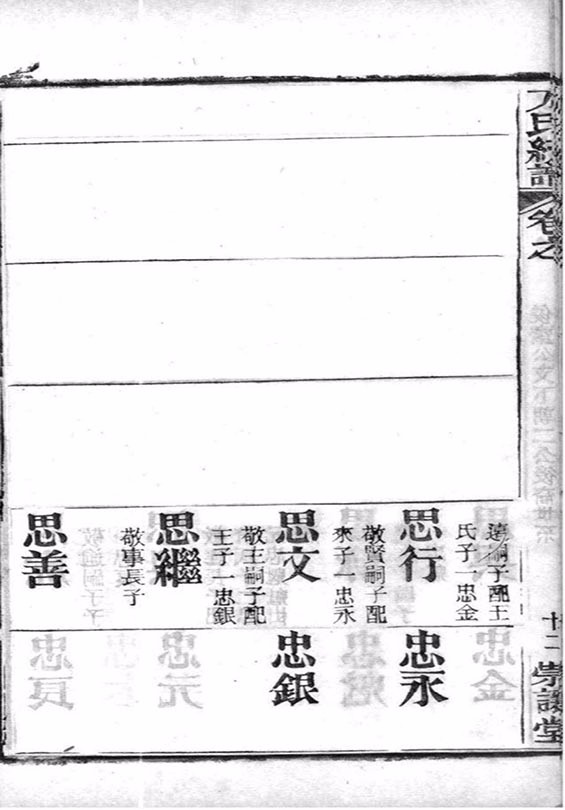 方氏統譜
卷之
十二
崇讓堂
遠嗣子配王
氏子一忠金
思行
敬賢嗣子配
來子一忠永
思文
敬主嗣子配
王子一忠銀
思繼
敬事長子
思善
忠永
忠銀